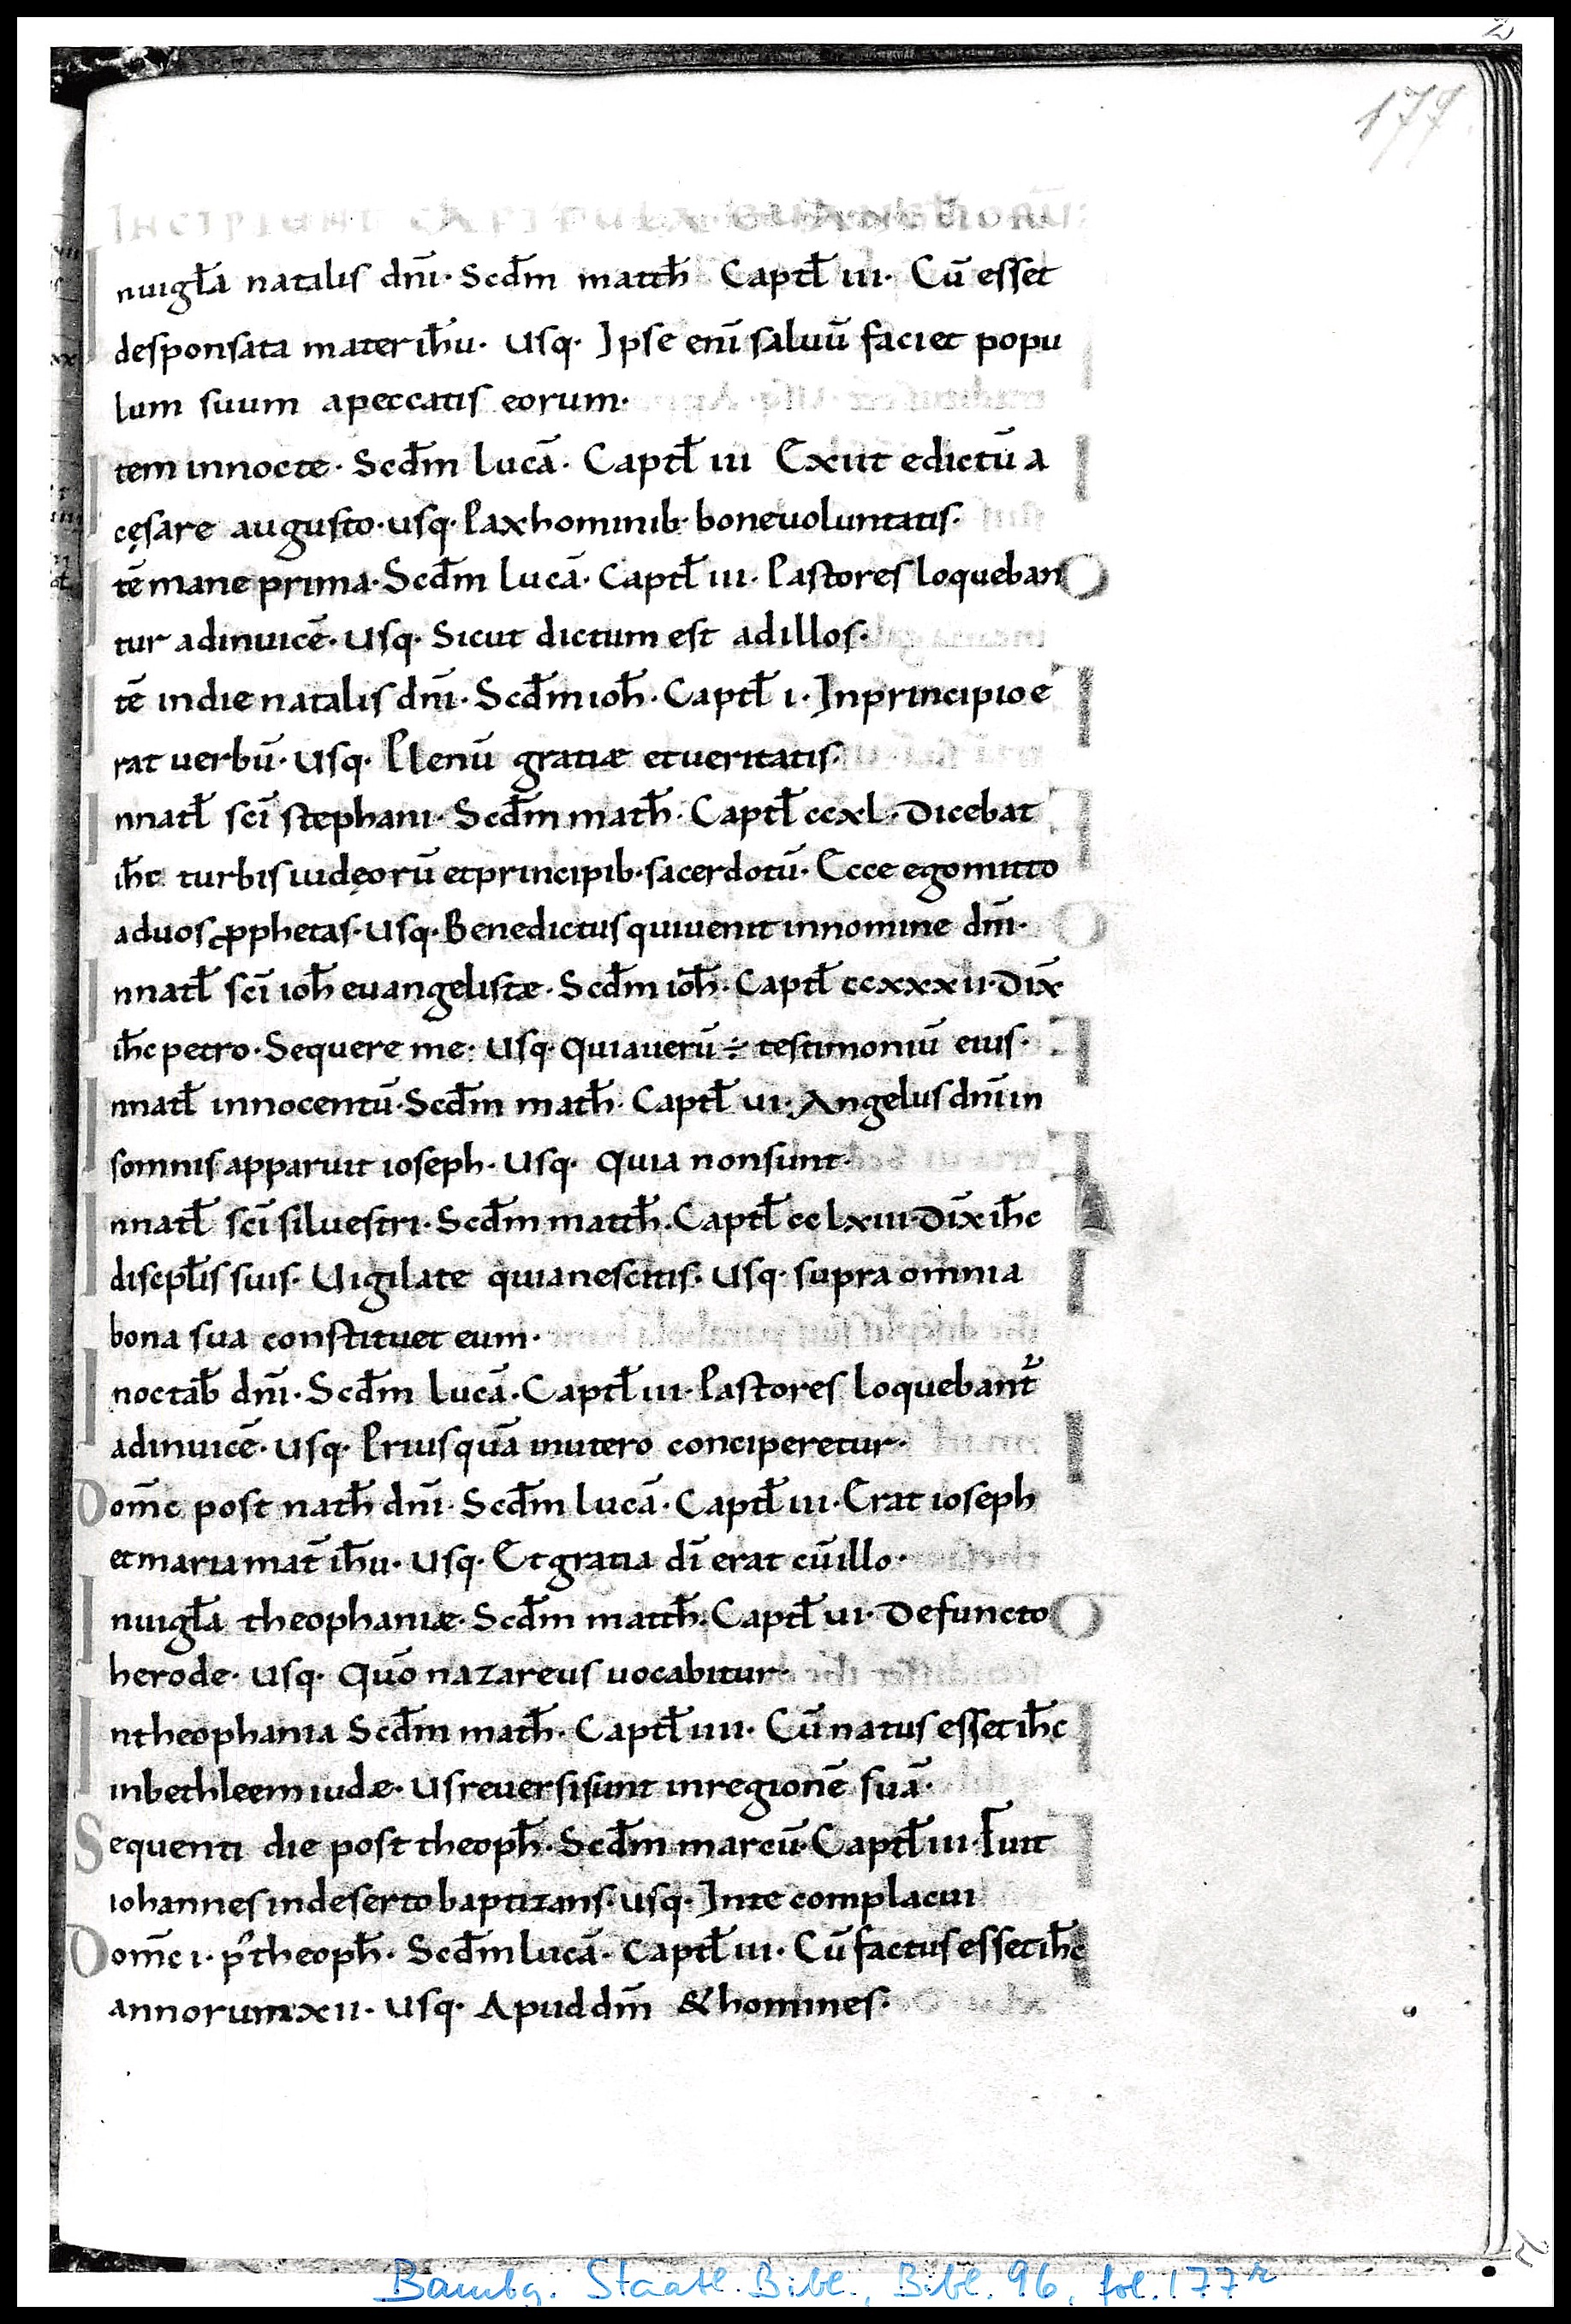 177
INCIPIUNT CAPITULA EUANGELIORU̅
I nuigl̅a natalis dn̅i· Scd̅m matth̅ Captl̅ iii· Cu̅ esset
desponsata mater ih̅u· Usq· Ipse eni̅ saluu̅ faciet popu
lum suum apeccatis eorum·
I tem innocte· Scd̅m luca̅· Captl̅ iii Exiit edictu̅ a
cęsare augusto· usq· Pax hominib· bone uoluntatis·
I te̅ mane prima· Scd̅m luca̅· Captl̅ iii· Pastores loqueban
tur adinuice̅· Usq· Sicut dictum est adillos·
I te̅ indie natalis dn̅i· Scd̅m ioh̅· Captl̅ i· Inprincipio e
rat uerbu̅· Usq· Plenu̅ gratiæ et ueritatis·
I nnatl̅ sci̅ stephani· Scd̅m math̅· Captl̅ ccxl· Dicebat
ih̅c turbis iudęoru̅ et principib· sacerdotu̅· Ecce ego mitto
aduos ꝓphetas· Usq· Benedictus qui uenit innomine dn̅i·
I nnatl̅ sci̅ ioh̅ euangelistæ· Scd̅m ioh̅· Captl̅ ccxxxii· Dix̅
ih̅c petro· Sequere me· Usq· Quia ueru̅ ÷ testimoniu̅ eius·
I nnatl̅ innocentu̅· Scd̅m math̅· Captl̅ ui· Angelus dn̅i in
somnis apparuit ioseph· Usq· Quia non sunt·
I nnatl̅ sci̅ siluestri· Scd̅m matth̅· Captl̅ cclxiii· Dix̅ ih̅c
discipl̅is suis· Uigilate quia nescitis· Usq· supra omnia
bona sua constituet eum·
I noctab̅ dn̅i· Scd̅m luca̅· Captl̅ iii· Pastores loquebant̅
adinuice̅· Usq· Priusqua̅ inutero conciperetur·
Dom̅c post nath̅ dn̅i· Scd̅m luca̅· Captl̅ iii· Erat ioseph
et maria mat̅ ih̅u· Usq· Et gratia di̅ erat cu̅ illo·
I nuigl̅a theophaniæ· Scd̅m matth̅· Captl̅ ui· Defuncto
herode· Usq· Quo̅ nazareus uocabitur·
I ntheophania Scd̅m math̅· Captl̅ iiii· Cu̅ natus esset ih̅c
inbethleem iudæ· Us reuersi sunt inregione̅ sua̅·
Sequenti die post theoph̅· Scd̅m marcu̅· Captl̅ iii· Fuit
iohannes indeserto baptizans· usq· Inte complacui
Dom̅c i· p᷒ theoph̅· Scd̅m luca̅· Captl̅ iii· Cu̅ factus esset ih̅c
annorum xii· Usq· Apud dm̅ & homines·
Bambg. Staatl. Bibl., Bibl. 96, fol. 177r